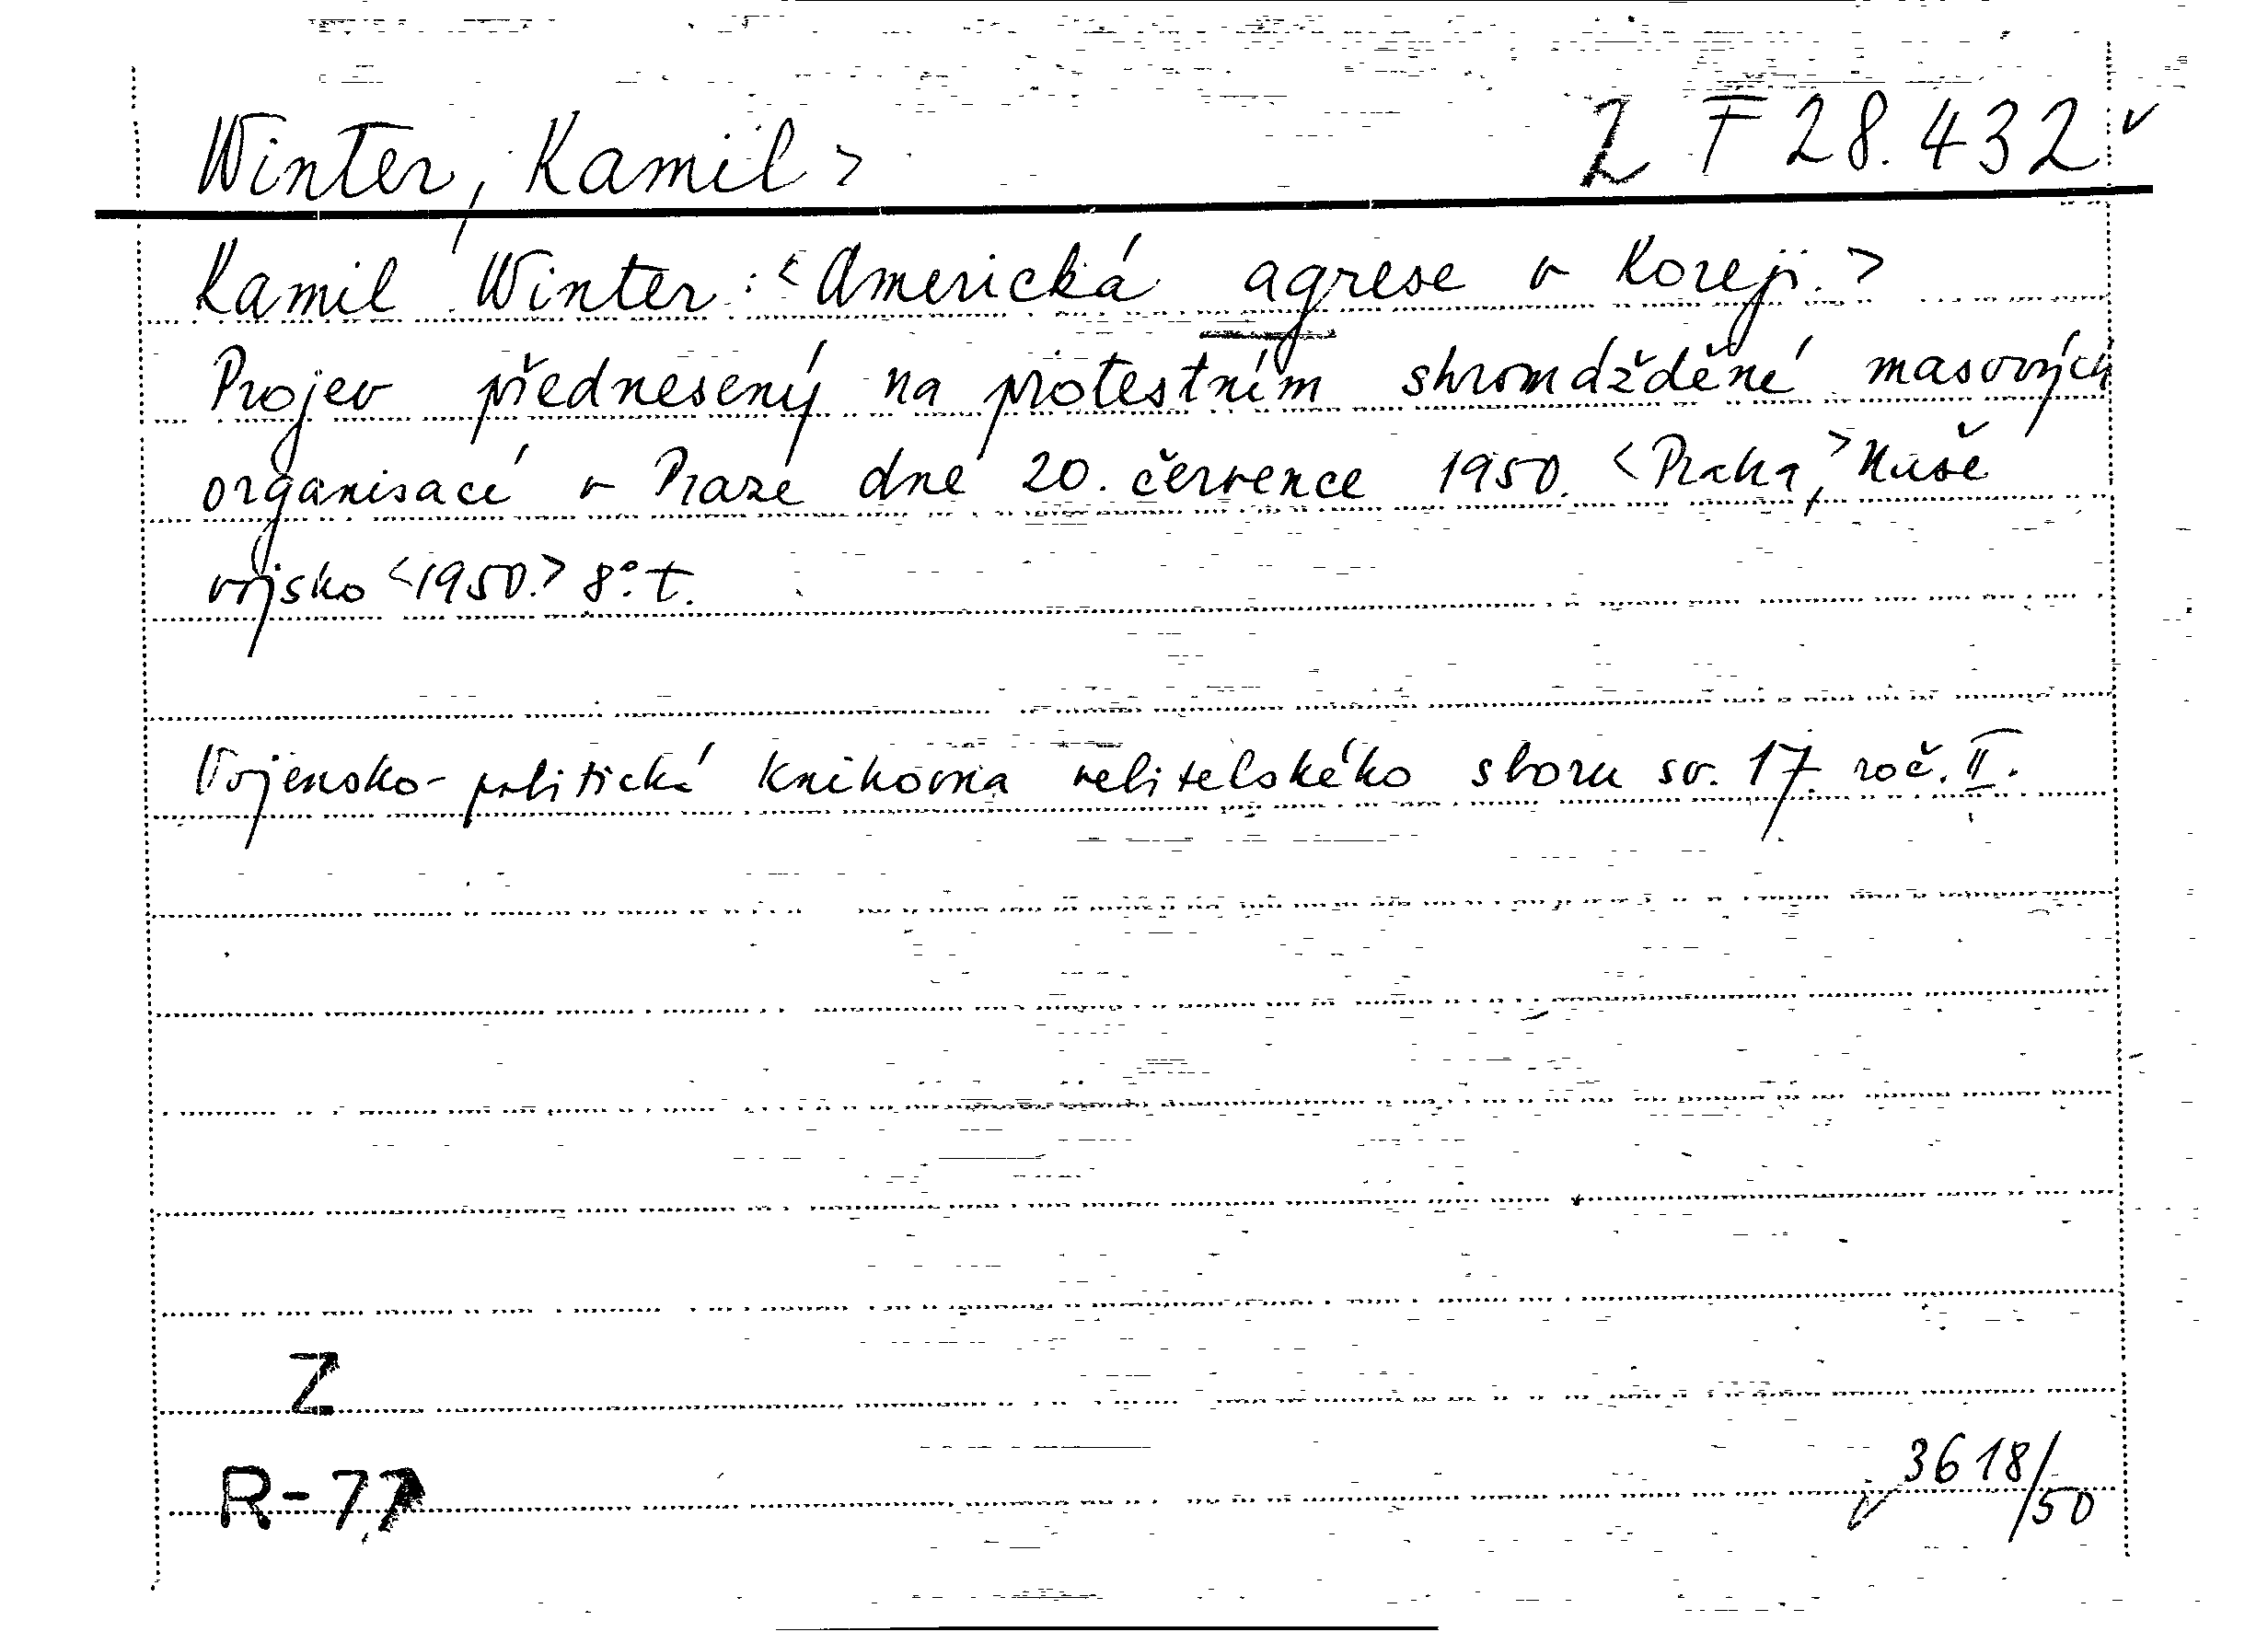 Winter, Kamil > Z F 28.432 v
Kamil Winter: <Americká agrese v Koreji.>
Projev přednesený na protestním shromáždění masových
organisací v Praze dne 20. července 1950. <Praha,> Naše
vojsko <1950.> 8°. t.
Vojensko-politická knihovna velitelského sboru sv. 17 roč. II.
Z
R-77
v 3618/50